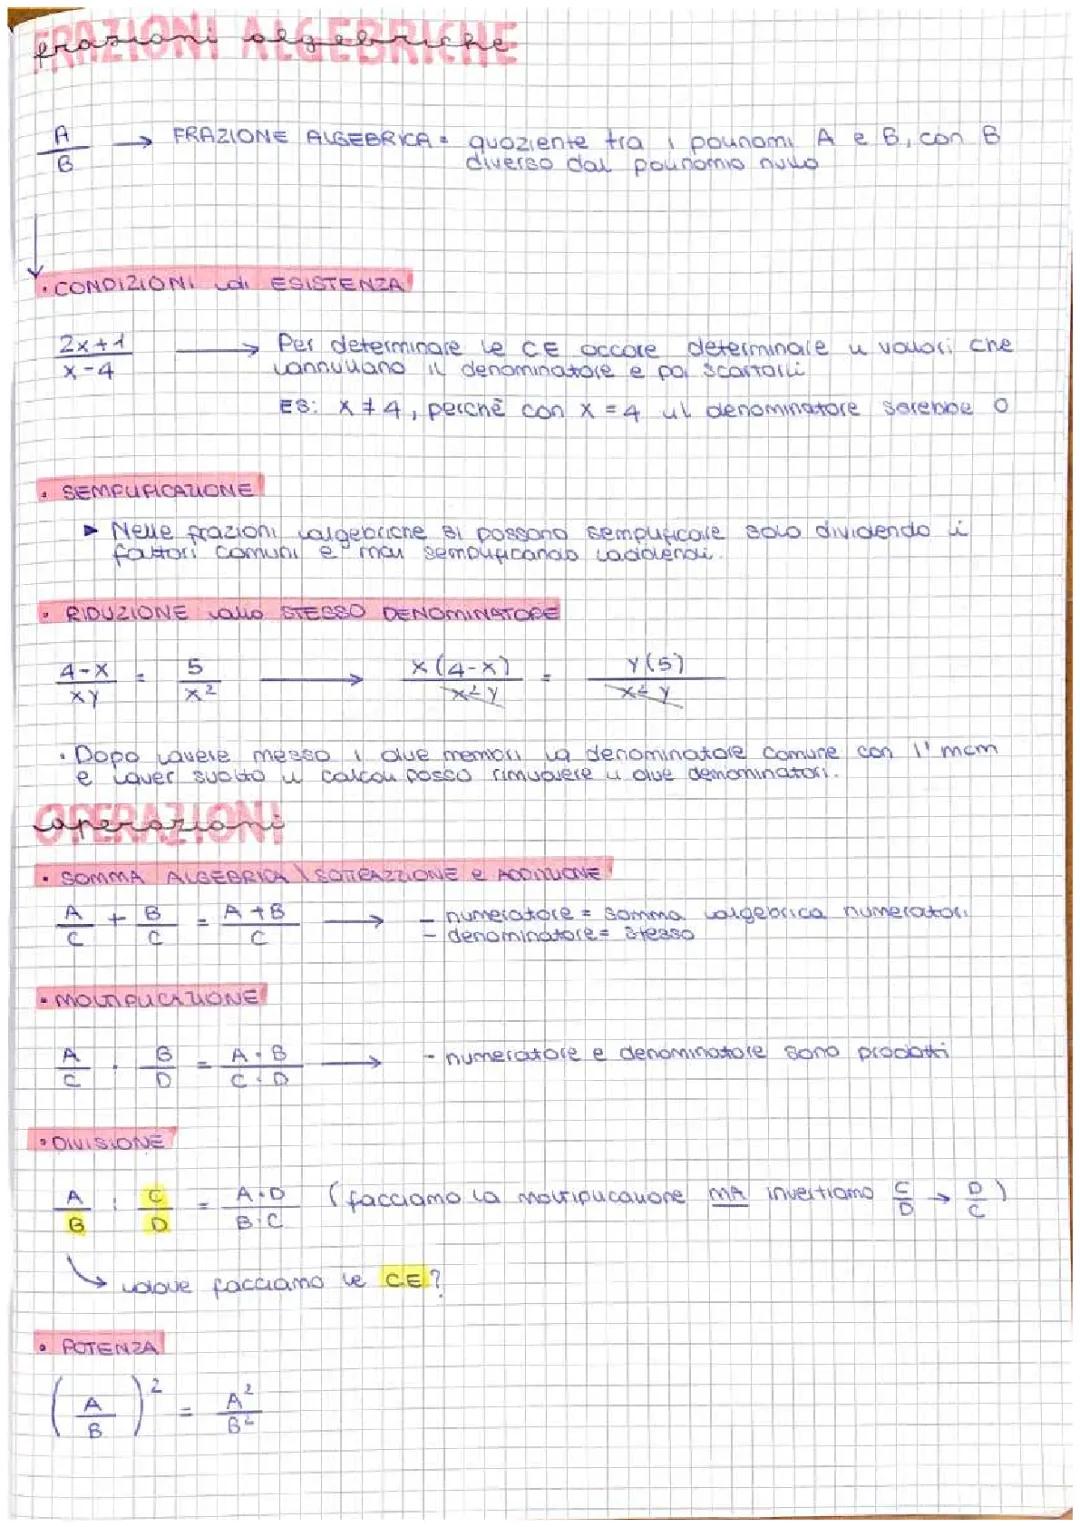 FRAZIONI ALGEBRICHE
frazioni algebriche
A/B → FRAZIONE ALGEBRICA = quoziente tra i polinomi A e B, con B
diverso dal polinomio nullo
• CONDIZIONI di ESISTENZA
(2x+1)/(x-4) → Per determinare le CE occore determinare i valori che
annullano il denominatore e poi scartarli
ES: x ≠ 4, perchè con x = 4 il denominatore sarebbe 0
• SEMPLIFICAZIONE
▶ Nelle frazioni algebriche si possono semplificare solo dividendo i
fattori comuni e mai semplificando addendi.
• RIDUZIONE allo STESSO DENOMINATORE
(4-x)/(xy) = 5/x² → x(4-x)/(x²y) = y(5)/(x²y)
• Dopo avere messo i due membri a denominatore comune con l'mcm
e aver svolto i calcoli posso rimuovere i due denominatori.
OPERAZIONI
operazioni
• SOMMA ALGEBRICA \ SOTTRAZZIONE e ADDIZIONE
A/C + B/C = (A+B)/C → - numeratore = somma algebrica numeratori
- denominatore = stesso
• MOLTIPLICAZIONE
A/C · B/D = (A·B)/(C·D) → - numeratore e denominatore sono prodotti
• DIVISIONE
A/B : C/D = (A·D)/(B·C) (facciamo la moltiplicazione MA invertiamo C/D → D/C)
↘ dove facciamo le CE?
• POTENZA
(A/B)² = A²/B²